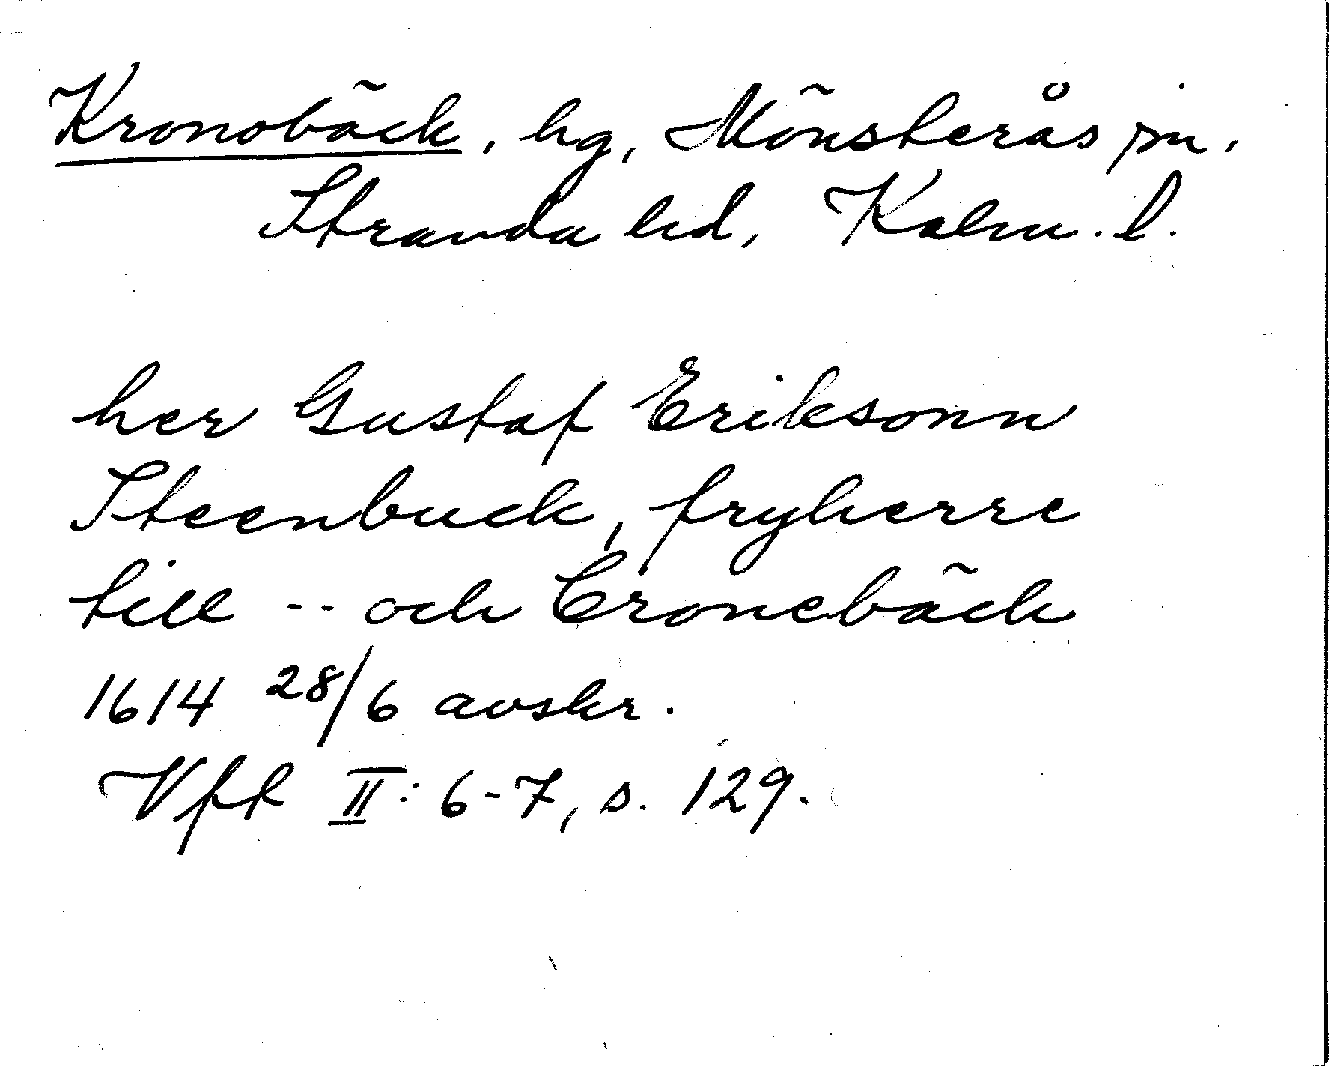 Kronobäck, hg, Mönsterås sn,
Stranda hd, Kalm. l.
her Gustaf Eriksonn
Steenbuck, fryherre
till -- och Cronebäck
1614 28/6 avskr.
Vfl II: 6-7, s. 129.